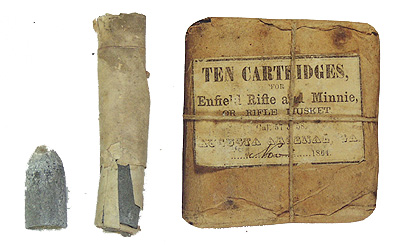 TEN CARTRIDGES,
FOR
Enfie'd Rifle and Minnie,
OR RIFLE MUSKET
Cal. 57 58.
AUGUSTA ARSENAL, GA.
1864.